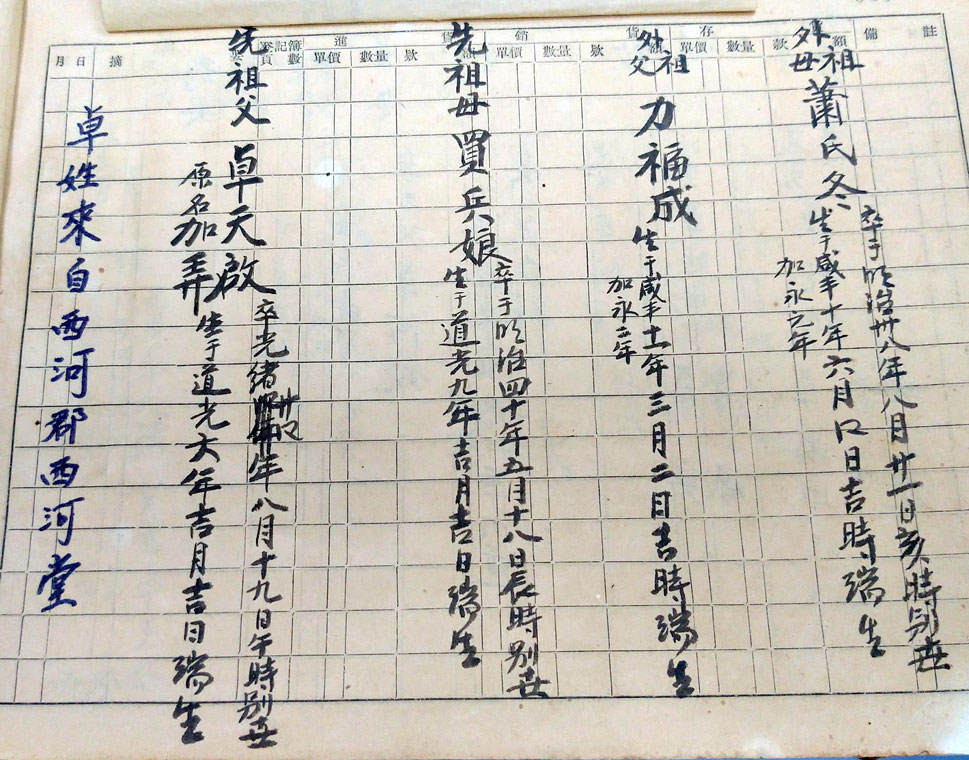 備註
存貨
款額
數量
單價
銷貨
款額
數量
單價
進
款
數量
單價
登記簿頁數
摘
月日
外祖母 蕭氏冬
卒于明治卅八年八月廿一日亥時別世
生于咸丰十年六月口日吉時瑞生
加永元年
外祖父 力福成
生于咸丰十一年三月二日吉時瑞生
加永二年
先祖母 買兵娘
卒于明治四十年五月十八日辰時別世
生于道光九年吉月吉日瑞生
先祖父 卓天啟
原名加弄
卒光緒年八月十九日午時別世
生于道光六年吉月吉日瑞生
卓姓來自西河郡西河堂